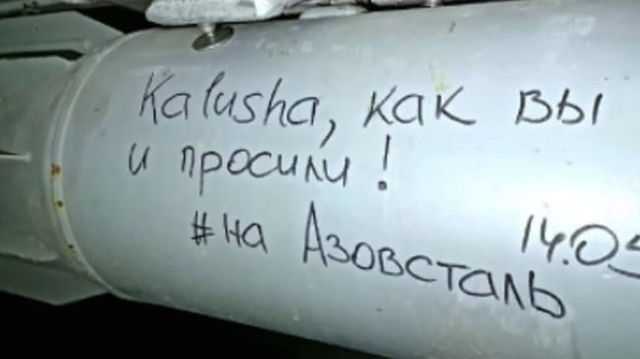 Kalusha, как вы
и просили!
#на Азовсталь
14.05